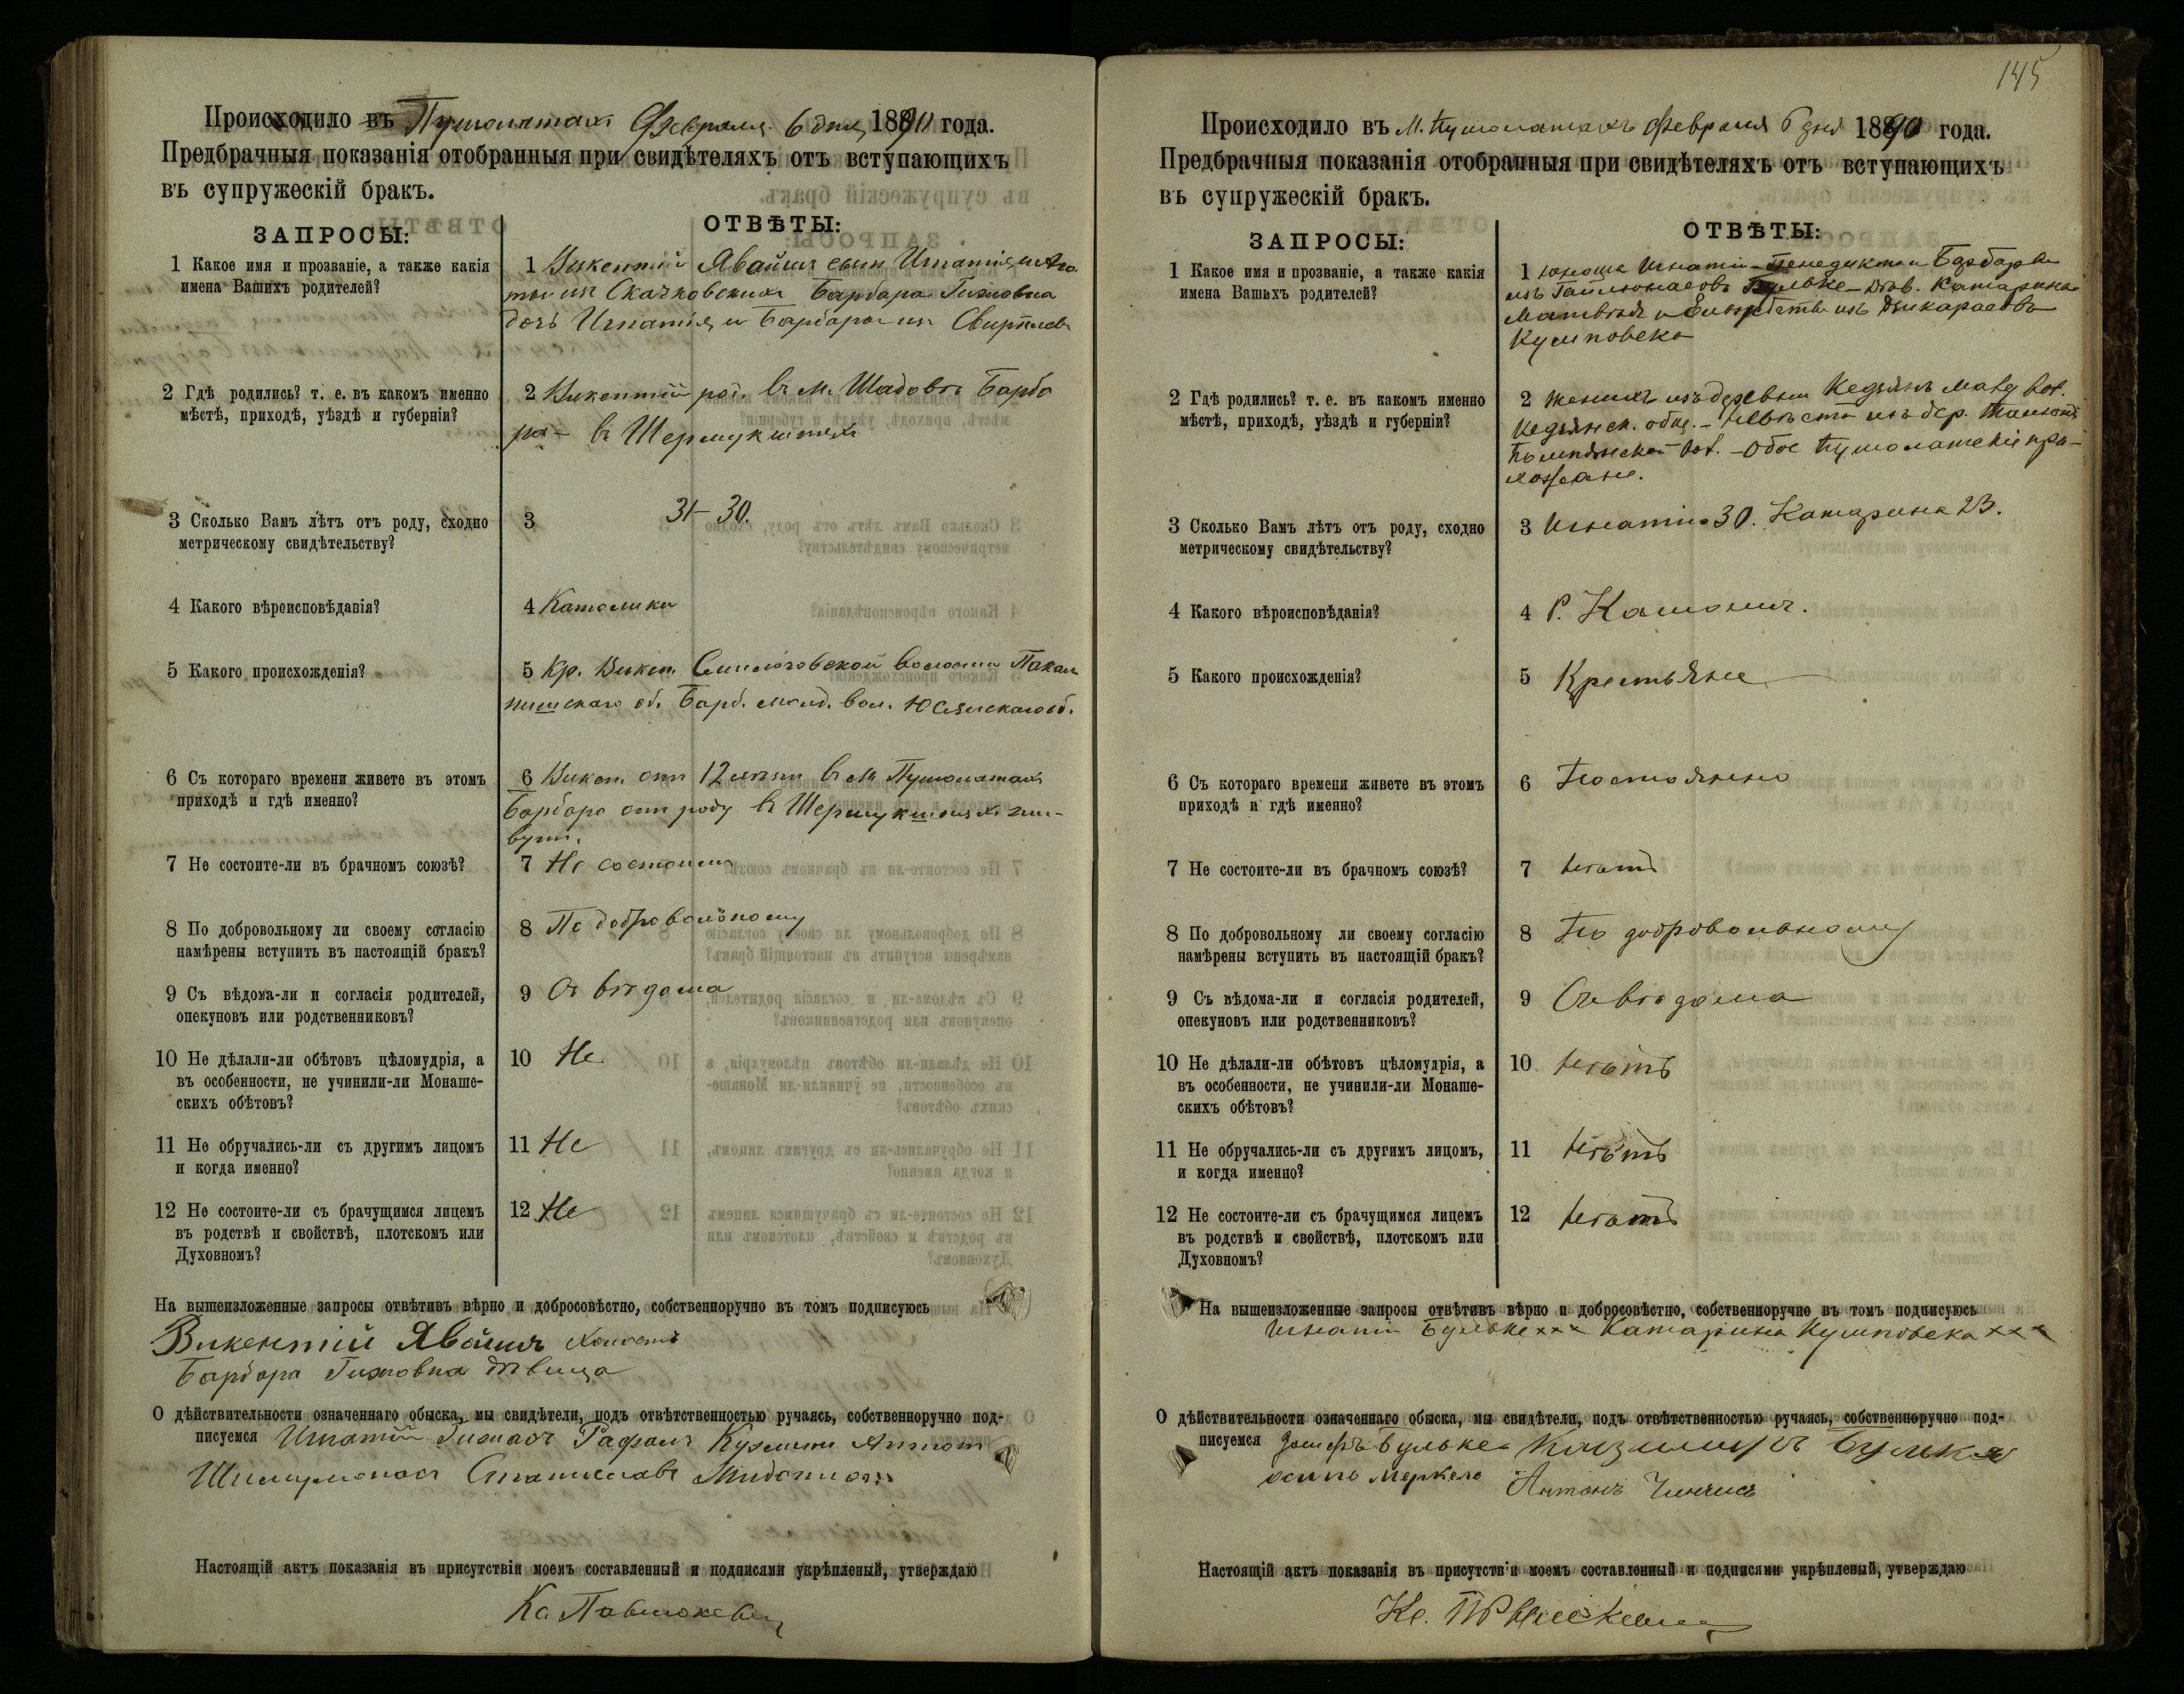 Происходило въ Пушолатахъ Февраля 6 дня 1890 года.
Предбрачныя показанія отобранныя при свидѣтеляхъ отъ вступающихъ
въ супружескій бракъ.
ЗАПРОСЫ:
ОТВѢТЫ:
1 Какое имя и прозваніе, а также какія
имена Вашихъ родителей?
1 Викентій Явайшъ сынъ Игнатія и
Скачковскихъ Барбара
дочь Игнатія и Барбары изъ
2 Гдѣ родились? т. е. въ какомъ именно
мѣстѣ, приходѣ, уѣздѣ и губерніи?
2 Викентій род. въ м. Шадовѣ Барба
ра – въ Шермукштахъ
3 Сколько Вамъ лѣтъ отъ роду, сходно
метрическому свидѣтельству?
3 31– 30.
4 Какого вѣроисповѣданія?
4 Католики
5 Какого происхожденія?
5 Кр. Викен. волости
об. Барб. вол.
6 Съ котораго времени живете въ этомъ
приходѣ и гдѣ именно?
6 Викен. отъ 12 лѣтъ въ м. Пушолатахъ
Барбара отъ роду въ Шермукштахъ жи-
вутъ.
7 Не состоите-ли въ брачномъ союзѣ?
7 Не состоимъ
8 По добровольному ли своему согласію
намѣрены вступить въ настоящій бракъ?
8 По добровольному
9 Съ вѣдома-ли и согласія родителей,
опекуновъ или родственниковъ?
9 Съ вѣдома
10 Не дѣлали-ли обѣтовъ цѣломудрія, а
въ особенности, не учинили-ли Монаше-
скихъ обѣтовъ?
10 Не
11 Не обручались-ли съ другимъ лицомъ
и когда именно?
11 Не
12 Не состоите-ли съ брачущимся лицемъ
въ родствѣ и свойствѣ, плотскомъ или
Духовномъ?
12 Не
На вышеизложенные запросы отвѣтивъ вѣрно и добросовѣстно, собственноручно въ томъ подписуюсь
Викентій Явайшъ холостъ
Барбара дѣвица
О дѣйствительности означеннаго обыска, мы свидѣтели, подъ отвѣтственностью ручаясь, собственноручно под-
писуемся Игнатій Рафалъ Антонъ
Станиславъ
Настоящій актъ показанія въ присутствіи моемъ составленный и подписями укрѣпленый, утверждаю
145
Происходило въ м. Пушолатахъ Февраля 6 дня 1890 года.
Предбрачныя показанія отобранныя при свидѣтеляхъ отъ вступающихъ
въ супружескій бракъ.
ЗАПРОСЫ:
ОТВѢТЫ:
1 Какое имя и прозваніе, а также какія
имена Вашихъ родителей?
1 юноша Игнатій – Бенедикта и Барбары
изъ Бульке – дѣв. Катарина
Матвѣя и Елизабеты изъ
Кумповска
2 Гдѣ родились? т. е. въ какомъ именно
мѣстѣ, приходѣ, уѣздѣ и губерніи?
2 Женихъ изъ деревни вол.
общ. – Невѣста изъ дер.
вол. – Обое Пушолатскіе при-
хожане.
3 Сколько Вамъ лѣтъ отъ роду, сходно
метрическому свидѣтельству?
3 Игнатію 30. Катарина 23.
4 Какого вѣроисповѣданія?
4 Р. Католич.
5 Какого происхожденія?
5 Крестьяне
6 Съ котораго времени живете въ этомъ
приходѣ и гдѣ именно?
6 Постоянно
7 Не состоите-ли въ брачномъ союзѣ?
7 Нѣтъ
8 По добровольному ли своему согласію
намѣрены вступить въ настоящій бракъ?
8 По добровольному
9 Съ вѣдома-ли и согласія родителей,
опекуновъ или родственниковъ?
9 Съ вѣдома
10 Не дѣлали-ли обѣтовъ цѣломудрія, а
въ особенности, не учинили-ли Монаше-
скихъ обѣтовъ?
10 Нѣтъ
11 Не обручались-ли съ другимъ лицомъ,
и когда именно?
11 Нѣтъ
12 Не состоите-ли съ брачущимся лицемъ
въ родствѣ и свойствѣ, плотскомъ или
Духовномъ?
12 Нѣтъ
На вышеизложенные запросы отвѣтивъ вѣрно и добросовѣстно, собственноручно въ томъ подписуюсь
Игнатій Бульке ××× Катарина Кумповска ×××
О дѣйствительности означеннаго обыска, мы свидѣтели, подъ отвѣтственностью ручаясь, собственноручно под-
писуемся Бульке Казимиръ Бульке
Осипъ Меркело Антонъ
Настоящій актъ показанія въ присутствіи моемъ составленный и подписями укрѣпленый, утверждаю